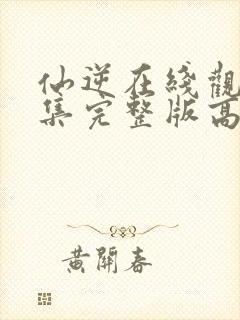 仙逆在綫觀
集完整版高
黄開春